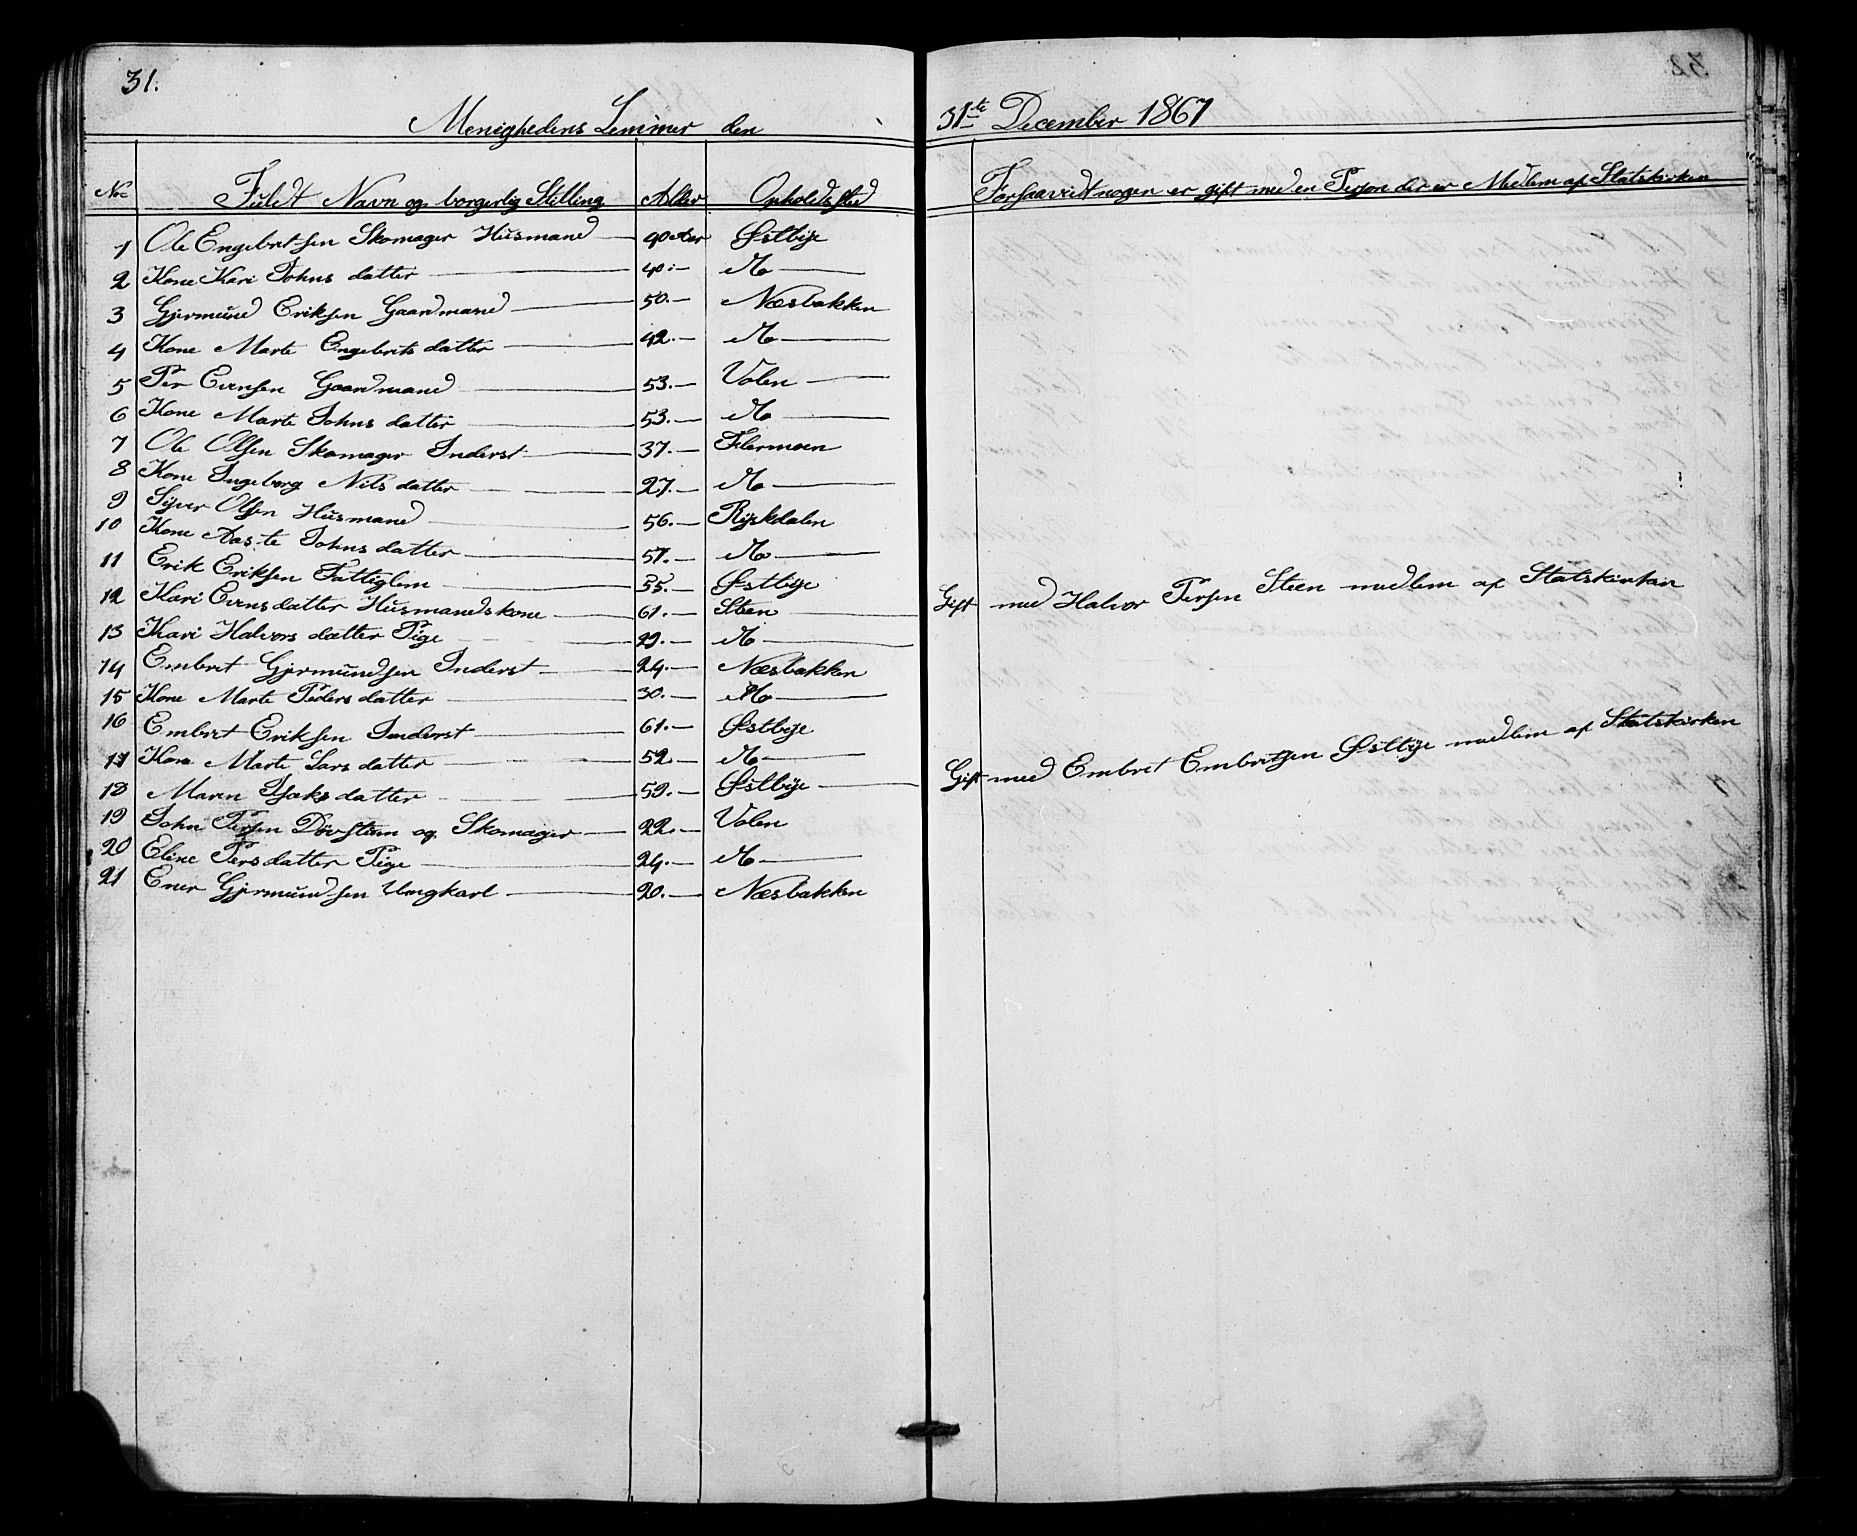 31.
Menighedens Lemmer den 31te December 1867
No Fuldt Navn og borgerlig Stilling Alder Opholdssted Forsaavidt nogen er gift med en Person der er Medlem af Statskirken
1 Ole Engebretsen Skomager Husmand 40 Aar Østbÿe
2 Kone Kari Johnsdatter 40 do
3 Gjermund Eriksen Gaardmand 50. Næsbakken
4 Kone Marte Engebretsdatter 42. do
5 Per Evensen Gaardmand 53. Volen
6 Kone Marte Johnsdatter 53. do
7 Ole Olsen Skomager Inderst 37. Flermoen
8 Kone Ingeborg Nilsdatter 27. do
9 Sÿver Olsen Husmand 56. Rÿskdalen
10 Kone Aaste Johnsdatter 57. do
11 Erik Eriksen Fattiglem 55. Østbÿe
12 Kari Evensdatter Husmandskone 61. Steen Gift med Halvor Persen Steen medlem af Statskirken
13 Kari Halvorsdatter Pige 29. do
14 Embret Gjermundsen Inderst 24. Næsbakken
15 Kone Marte Pedersdatter 30. do
16 Embret Eriksen Inderst 61. Østbÿe
17 Kone Marte Larsdatter 52. do
18 Maren Isaksdatter 59. Østbÿe Gift med Embret Embretsen Østbÿe medlem af Statskirken
19 John Persen Døvstum og Skomager 22. Volen
20 Eline Persdatter Pige 24. do
21 Ener Gjermundsen Ungkarl 20. Næsbakken